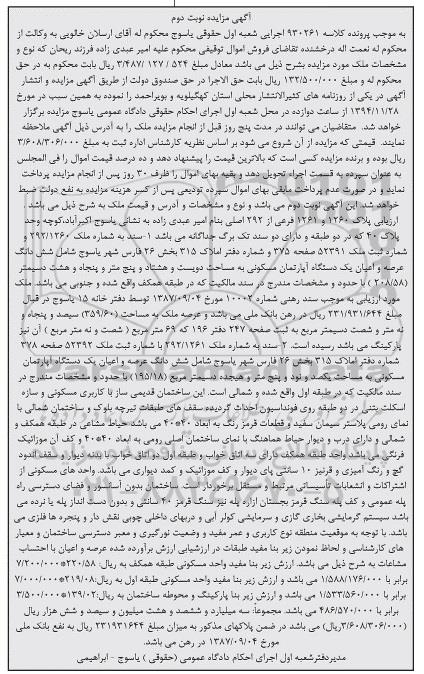 آگهی مزایده نوبت دوم
به موجب پرونده کلاسه ۹۳۰۲۶۱ اجرایی شعبه اول حقوقی یاسوج محکوم له آقای ارسلان خالویی به وکالت از
محکوم له نعمت اله درخشنده تقاضای فروش اموال توقیفی محکوم علیه امیر عبدی زاده فرزند ریحان که نوع و
مشخصات ملک مورد مزایده بشرح ذیل می باشد معادل مبلغ ۵۲۴ / ۱۲۷ / ۳/۴۸۷ ریال بابت محکوم به در حق
محکوم له و مبلغ ۱۳۲/۵۰۰/۰۰۰ ریال بابت حق الاجرا در حق صندوق دولت از طریق آگهی مزایده و انتشار
آگهی در یکی از روزنامه های کثیرالانتشار محلی استان کهگیلویه و بویراحمد را نموده به همین سبب در مورخ
۱۳۹۴/۱۱/۲۸ از ساعت دوازده در محل شعبه اول اجرای احکام حقوقی دادگاه عمومی یاسوج مزایده برگزار
خواهد شد. متقاضیان می توانند در مدت پنج روز قبل از انجام مزایده ملک را به آدرس ذیل آگهی ملاحظه
نمایند. قیمتی که مزایده از آن شروع می شود بر اساس نظریه کارشناس اداره ثبت به مبلغ ۳/۶۰۸/۳۰۶/۰۰۰
ریال بوده و برنده مزایده کسی است که بالاترین قیمت را پیشنهاد دهد و ده درصد قیمت اموال را فی المجلس
به عنوان سپرده به قسمت اجراء تحویل دهد و بقیه بهای اموال را ظرف ۳۰ روز پس از انجام مزایده پرداخت
نمایند و در صورت عدم پرداخت مابقی بهای اموال سپرده تودیعی پس از کسر هزینه مزایده به نفع دولت ضبط
خواهد شد. این آگهی نوبت دوم می باشد و نوع و مشخصات و آدرس و قیمت ملک به شرح ذیل می باشد
ارزیابی پلاک ۱۲۶۰ و ۱۲۶۱ فرعی از ۲۹۲ اصلی بنام امیر عبدی زاده به نشانی یاسوج اکبرآباد،کوچه وحد
پلاک ۴۰ که در دو طبقه و دارای دو سند تک برگ جداگانه می باشد ۱-سند به شماره ملک ۲۹۲/۱۲۶۰ و
شماره ثبت ملک ۵۲۳۹۱ صفحه ۳۷۵ و شماره دفتر املاک ۳۱۵ بخش ۲۶ فارس شهر یاسوج شامل شش دانگ
عرصه و اعیان یک دستگاه آپارتمان مسکونی به مساحت دویست و هشتاد و پنج متر و پنجاه و هشت دسیمتر
(۲۰۸/۵۸) با حدود و مشخصات مندرج در سند مالکیت که در طبقه همکف واقع شده و جنوبی می باشد. ملک
مورد ارزیابی به موجب سند رهنی شماره ۱۰۰۰۲ مورخ ۱۳۸۷/۰۹/۰۴ توسط دفتر خانه ۱۵ یاسوج در قبال
مبلغ ۲۳۱/۹۳۱/۶۴۴ ریال در رهن بانک ملی می باشد و عرصه ملک به مساحت (۳۵۹/۶۰) سیصد و پنجاه و
نه متر و شصت دسیمتر مربع به ثبت صفحه ۲۴۷ دفتر ۱۹۶ که ۶۹ متر مربع ( شصت و نه متر مربع ) آن نیز
پارکینگ می باشد رسیده است. ۲-سند به شماره ملک ۲۹۲/۱۲۶۱ با شماره ثبت ملک ۵۲۳۹۲ صفحه ۳۷۸
شماره دفتر املاک ۳۱۵ بخش ۲۶ فارس شهر یاسوج شامل شش دانگ عرصه و اعیان یک دستگاه آپارتمان
مسکونی به مساحت یکصد و نود و پنج متر و هیجده دسیمتر مربع (۱۹۵/۱۸) با حدود و مشخصات مندرج در
سند مالکیت که در طبقه اول واقع شده و شمالی است. این ساختمان قدیمی ساز با کاربری مسکونی و سازه
اسکلت بتنی در دو طبقه روی فونداسیون احداث گردیده سقف های طبقات تیرچه بلوک و ساختمان شمالی با
نمای رومی پلاستر سیمان سفید و قطعات قرمز رنگ به ابعاد ۴۰*۴۰ می باشد حیاط مشاعی در طبقه همکف و
شمالی و دارای درب و دیوار حیاط هماهنگ با نمای ساختمان اصلی رومی به ابعاد ۴۰*۴۰ و کف آن موزائیک
فرنگی می باشد واحد طبقه همکف دارای سه اتاق خواب و طبقه اول دو اتاق خواب با بدنه دیوار و سقف اندود
گچ و رنگ آمیزی و قرنیز ۱۰ سانتی پای دیوار و کف موزائیک و کمد دیواری می باشد. واحد های مسکونی از
اشتراکات و انشعابات تأسیساتی مرتبط و مستقل برخوردار است. ساختمان بدون آسانسور و فضای دسترسی راه
پله عمومی و کف پله سنگ قرمز بجستان ازاره پله نیز سنگ قرمز ۴۰ سانتی و بدون دست انداز پله یا نرده می
باشد سیستم گرمایشی بخاری گازی و سرمایشی کولر آبی و دربهای داخلی چوبی نقش دار و پنجره ها فلزی می
باشد. با توجه به موقعیت منطقه نوع کاربری و عمر مفید و وضعیت نورگیری و معبر دسترسی ساختمان و معیار
های کارشناسی و لحاظ نمودن زیر بنا مفید طبقات در ارزشیابی ارزش برآورده شده عرصه و اعیان با احتساب
مشاعات به شرح ذیل می باشد. ارزش زیر بنا مفید واحد مسکونی طبقه همکف به ریال: ۲۲۰/۵۸*۷/۲۰۰/۰۰۰
برابر با ۱/۵۸۸/۱۷۶/۰۰۰ می باشد و ارزش زیر بنا مفید واحد مسکونی طبقه اول به ریال:۲۱۹/۰۸*۷/۰۰۰/۰۰۰
برابر با ۱/۵۳۳/۵۶۰/۰۰۰ می باشد و ارزش زیر بنا پارکینگ و محوطه ساختمان به ریال:۱۳۹/۰۲*۳/۵۰۰/۰۰۰
برابر با ۴۸۶/۵۷۰/۰۰۰ می باشد. مجموعاً: سه میلیارد و ششصد و هشت میلیون و سیصد و شش هزار ریال
(۳/۶۰۸/۳۰۶/۰۰۰ریال) می باشد در ضمن پلاکهای مذکور به میزان مبلغ ۲۳۱۹۳۱۶۴۴ ریال به نفع بانک ملی
مورخ ۱۳۸۷/۰۹/۰۴ در رهن می باشد.
مدیردفترشعبه اول اجرای احکام دادگاه عمومی (حقوقی ) یاسوج - ابراهیمی